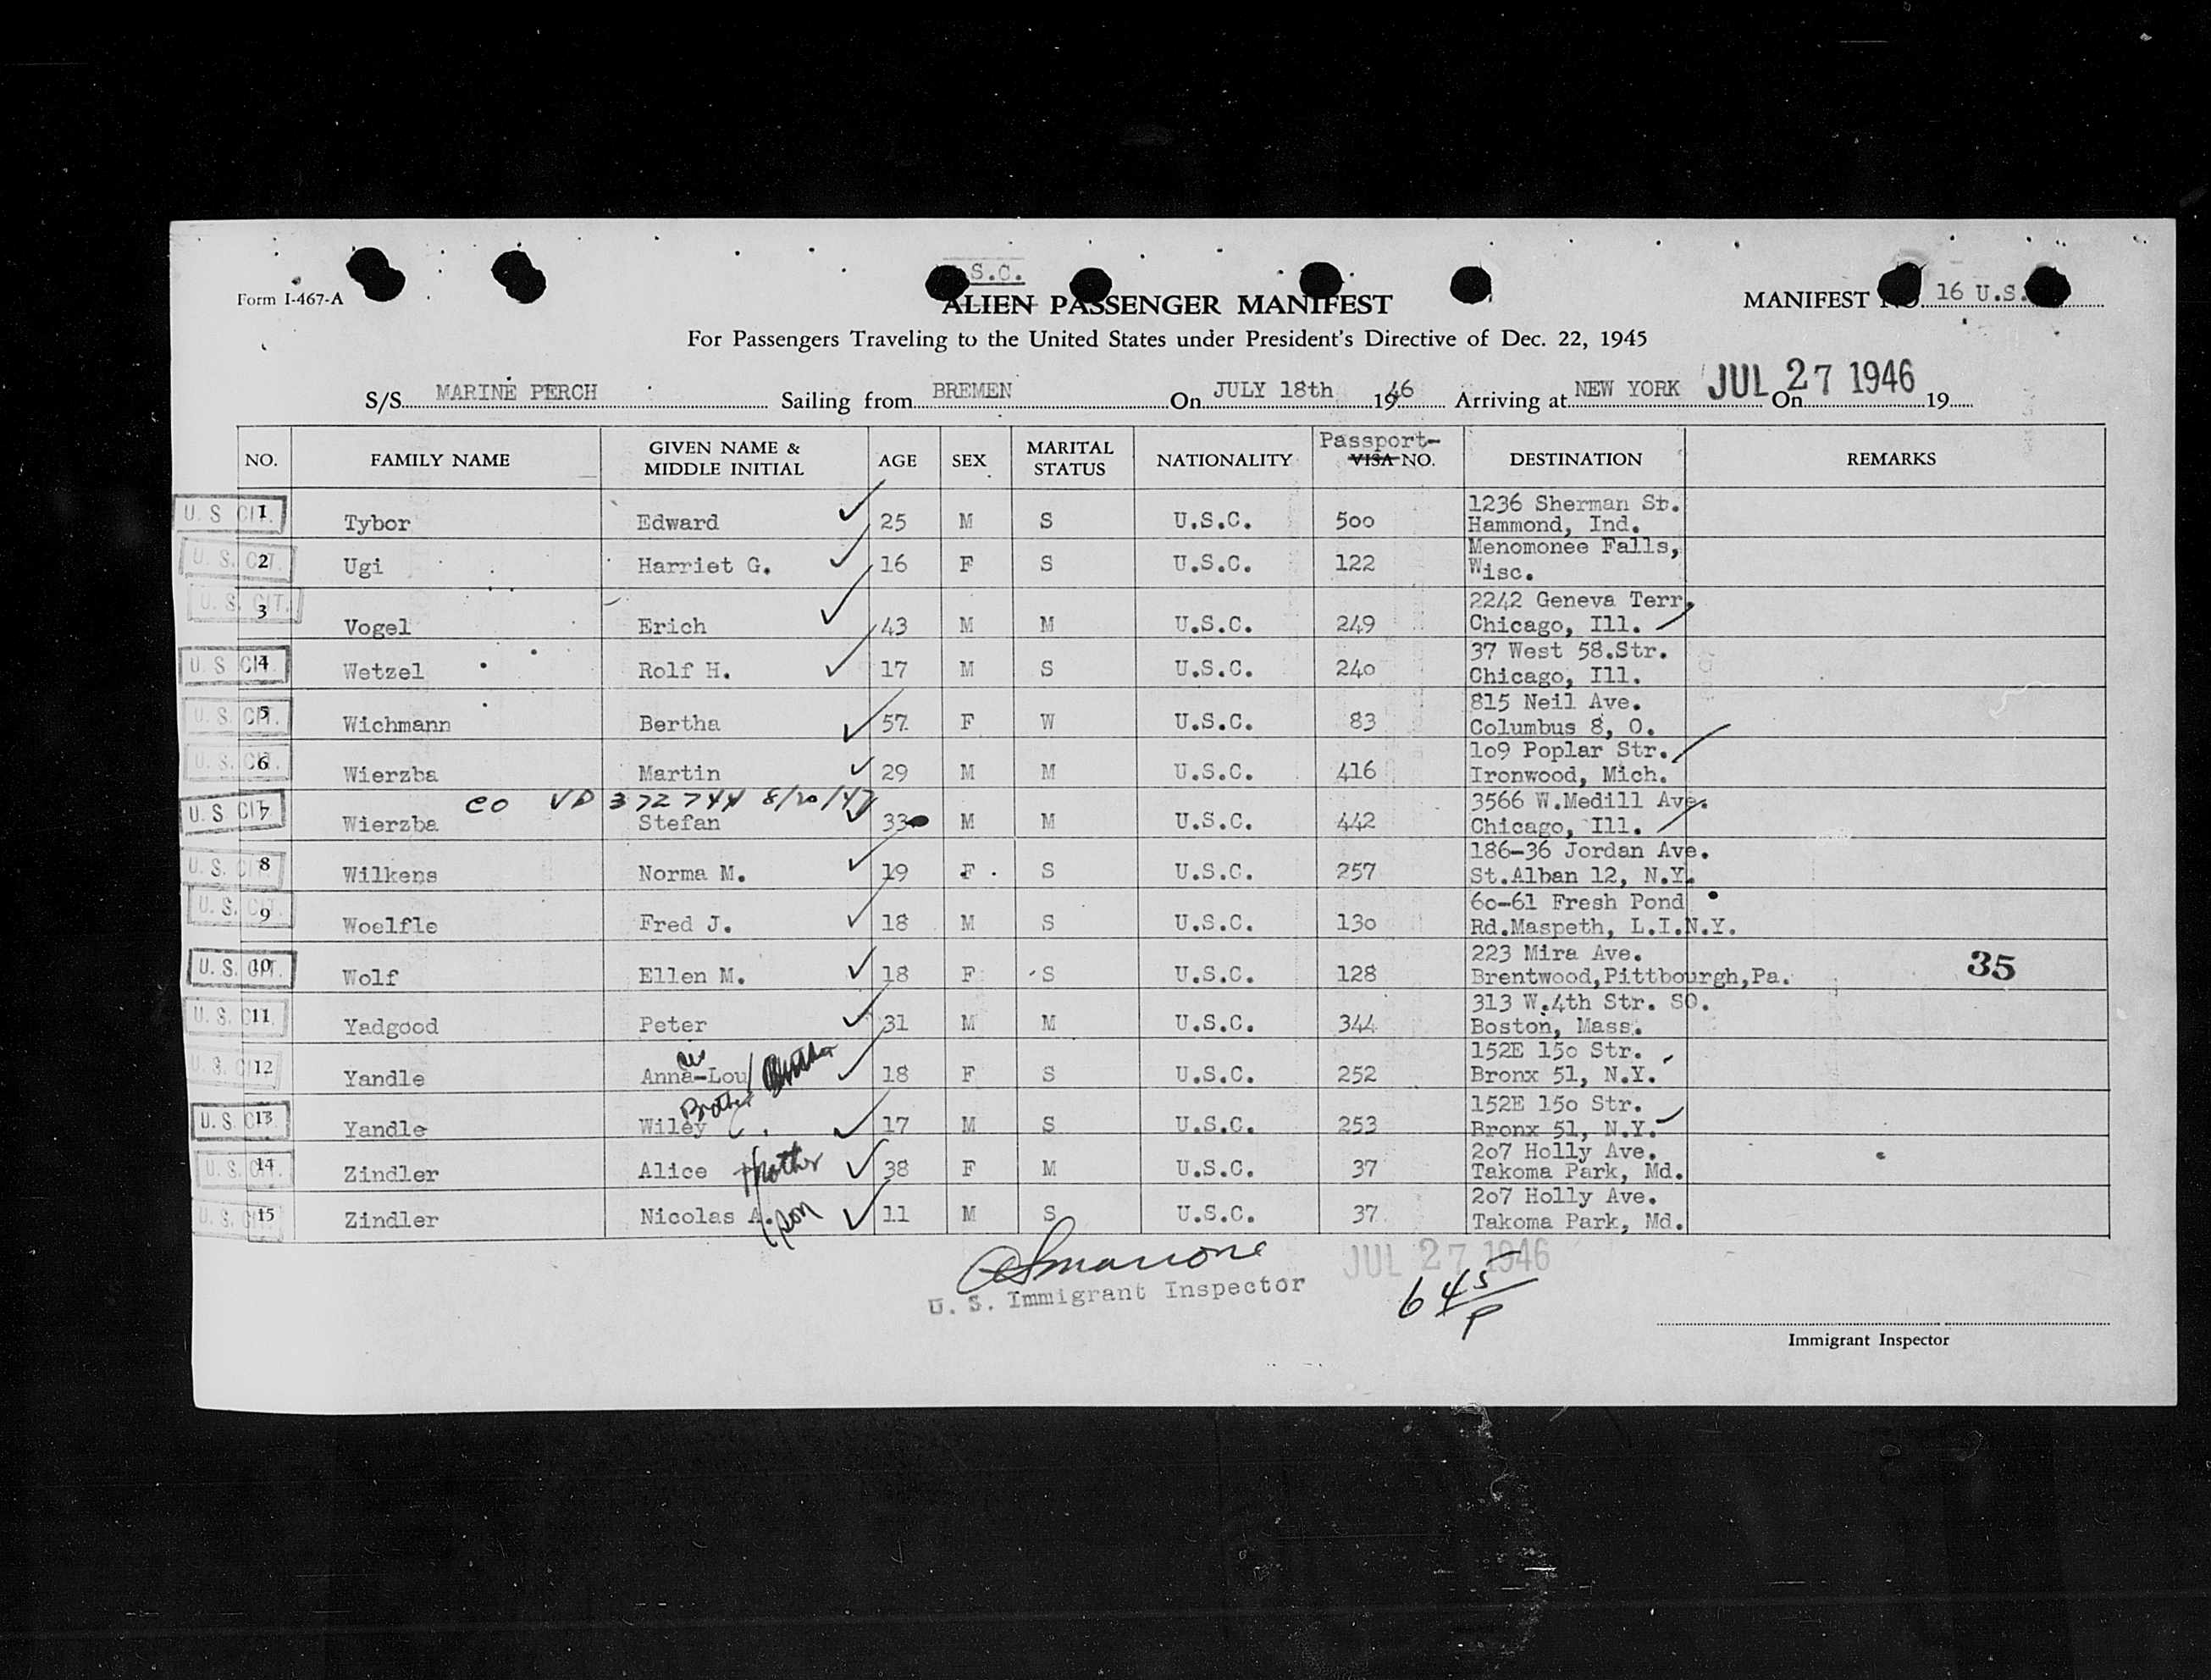 S.C.
Form I-467-A
ALIEN PASSENGER MANIFEST
MANIFEST NO. 16 U.S.
For Passengers Traveling to the United States under President's Directive of Dec. 22, 1945
S/S MARINE PERCH Sailing from BREMEN On JULY 18th 1946 Arriving at NEW YORK On JUL 27 1946 19
NO. FAMILY NAME GIVEN NAME & MIDDLE INITIAL AGE SEX MARITAL STATUS NATIONALITY Passport- VISA NO. DESTINATION REMARKS
U. S. CIT. 1 Tybor Edward 25 M S U.S.C. 500 1236 Sherman St. Hammond, Ind.
U. S. CIT. 2 Ugi Harriet G. 16 F S U.S.C. 122 Menomonee Falls, Wisc.
U. S. CIT. 3 Vogel Erich 43 M M U.S.C. 249 2242 Geneva Terr, Chicago, Ill.
U. S. CIT. 4 Wetzel Rolf H. 17 M S U.S.C. 240 37 West 58.Str. Chicago, Ill.
U. S. CIT. 5 Wichmann Bertha 57 F W U.S.C. 83 815 Neil Ave. Columbus 8, O.
U. S. CIT. 6 Wierzba Martin 29 M M U.S.C. 416 109 Poplar Str. Ironwood, Mich.
CO VD 372744 8/20/47
U. S. CIT. 7 Wierzba Stefan 33 M M U.S.C. 442 3566 W.Medill Ave. Chicago, Ill.
U. S. CIT. 8 Wilkens Norma M. 19 F S U.S.C. 257 186-36 Jordan Ave. St.Alban 12, N.Y.
U. S. CIT. 9 Woelfle Fred J. 18 M S U.S.C. 130 60-61 Fresh Pond Rd.Maspeth, L.I.N.Y.
U. S. CIT. 10 Wolf Ellen M. 18 F S U.S.C. 128 223 Mira Ave. Brentwood,Pittbourgh,Pa. 35
U. S. CIT. 11 Yadgood Peter 31 M M U.S.C. 344 313 W.4th Str. SO. Boston, Mass.
U. S. CIT. 12 Yandle Anna-Lou 18 F S U.S.C. 252 152E 150 Str. Bronx 51, N.Y.
Brother
U. S. CIT. 13 Yandle Wiley C. 17 M S U.S.C. 253 152E 150 Str. Bronx 51, N.Y.
U. S. CIT. 14 Zindler Alice Mother 38 F M U.S.C. 37 207 Holly Ave. Takoma Park, Md.
U. S. CIT. 15 Zindler Nicolas A. son 11 M S U.S.C. 37 207 Holly Ave. Takoma Park, Md.
JUL 27 1946
U. S. Immigrant Inspector
645/P
Immigrant Inspector